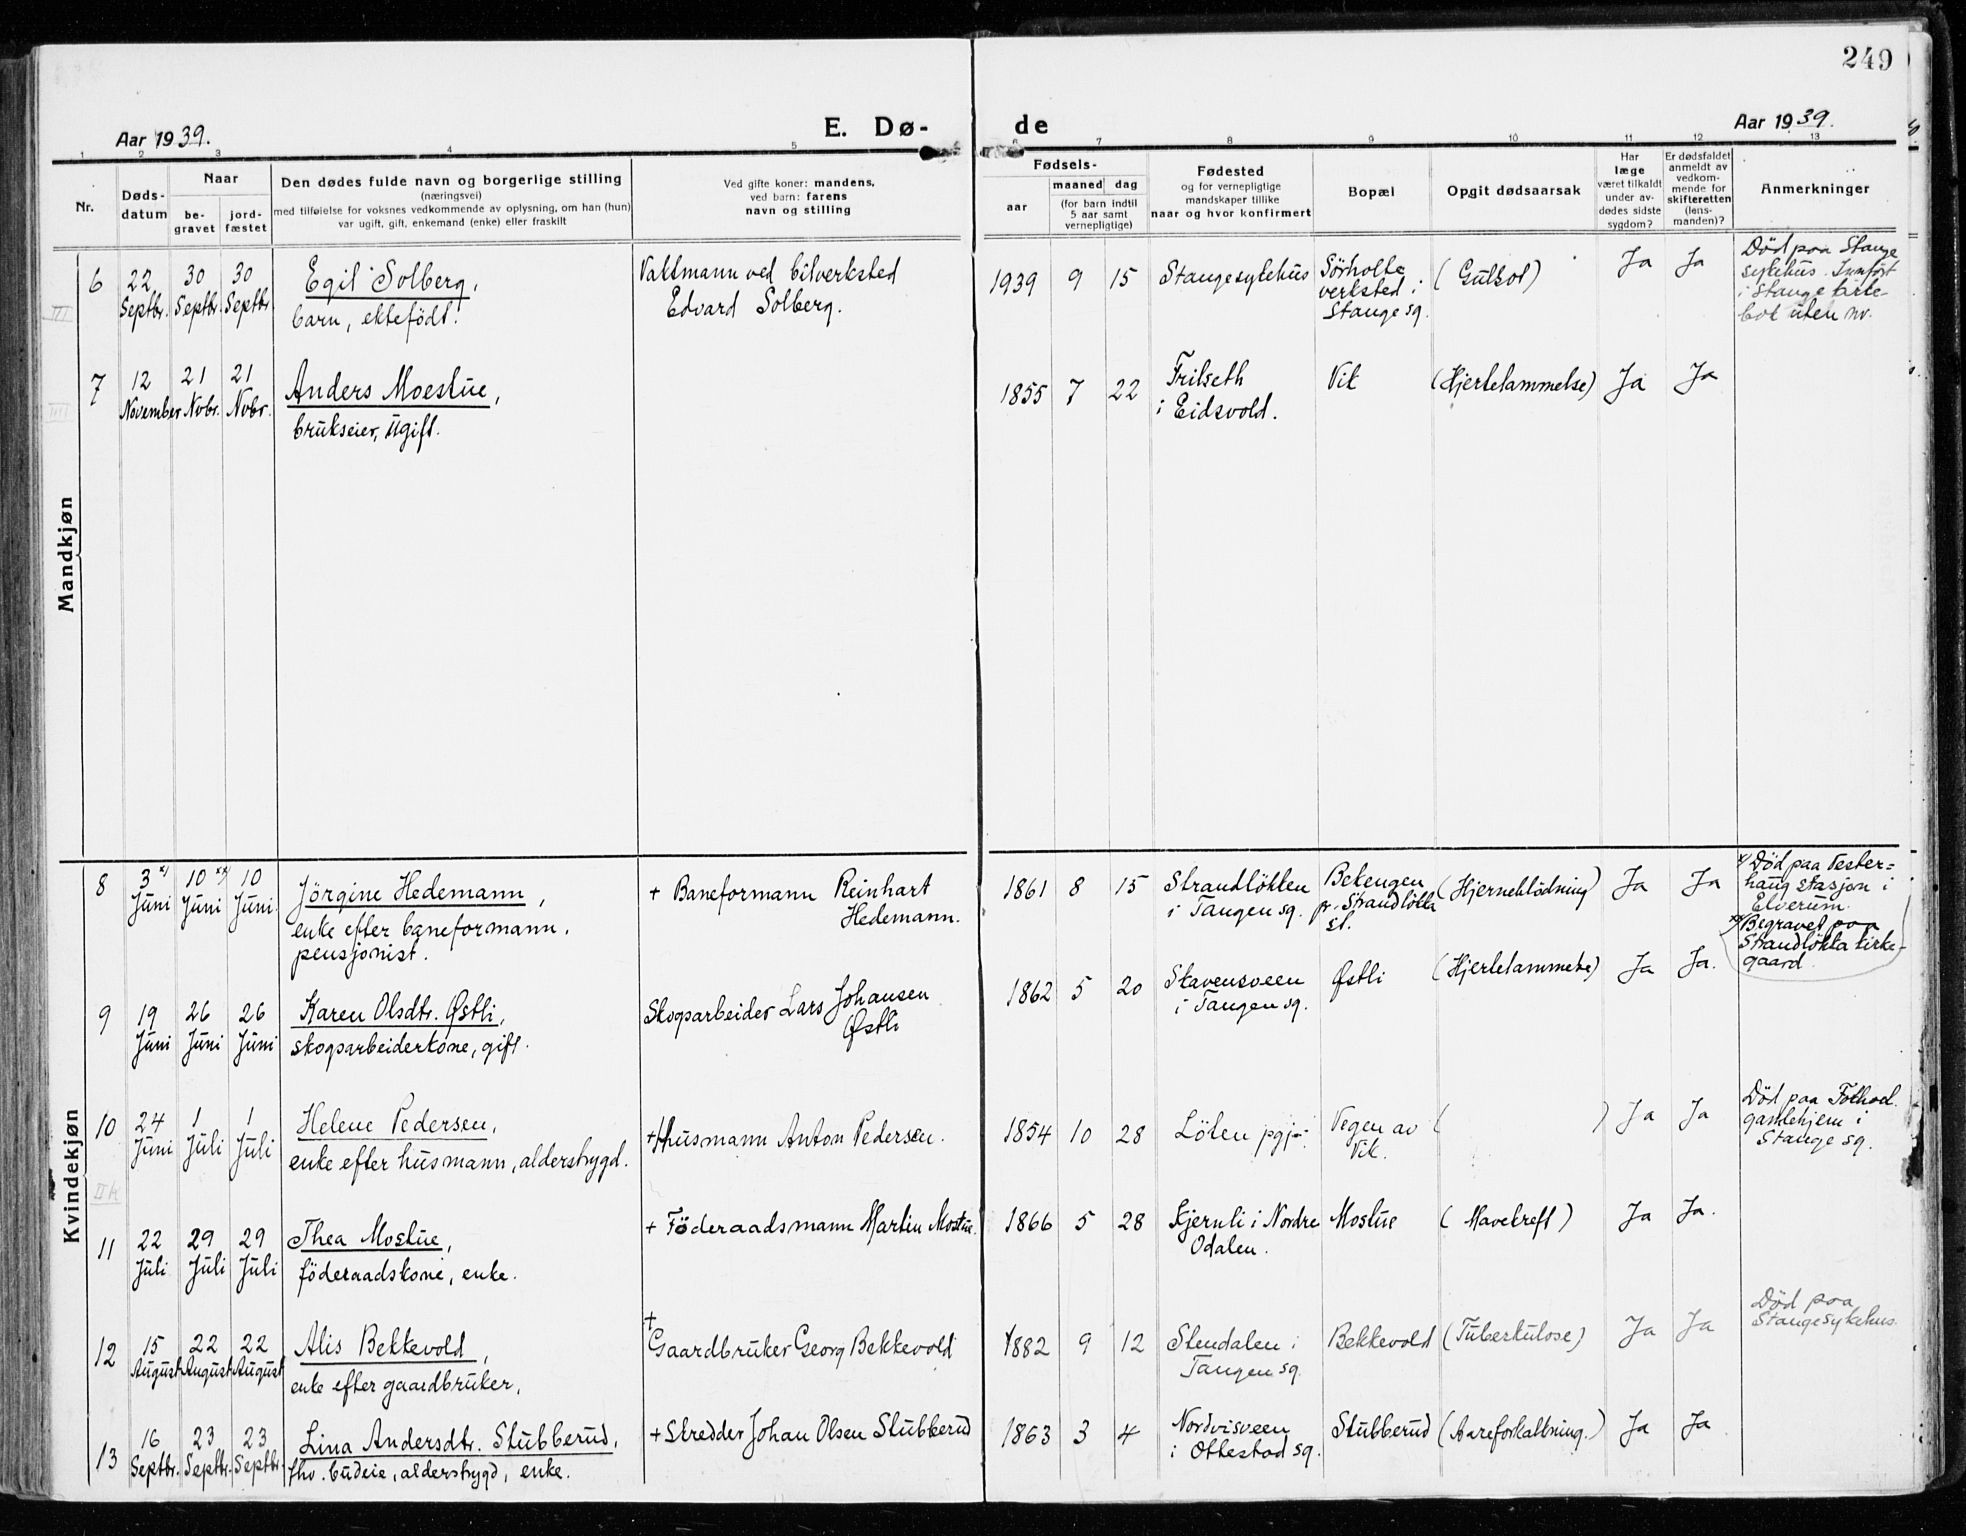 249
Aar 1939.
E. Dø-
de
Aar 1939.
1 2 3 4 5 6 7 8 9 10 11 12 13
Nr.
Døds-
datum
Naar
be-
gravet
jord-
fæstet
Den dødes fulde navn og borgerlige stilling
(næringsvei)
med tilføielse for voksnes vedkommende av oplysning, om han (hun)
var ugift, gift, enkemand (enke) eller fraskilt
Ved gifte koner: mandens,
ved barn: farens
navn og stilling
Fødsels-
aar
maaned
dag
(for barn indtil
5 aar samt
vernepligtige)
Fødested
og for vernepligtige
mandskaper tillike
naar og hvor konfirmert
Bopæl
Opgit dødsaarsak
Har
læge
været tilkaldt
under av-
dødes sidste
sygdom?
Er dødsfaldet
anmeldt av
vedkom-
mende for
skifteretten
(lens-
manden)?
Anmerkninger
Mandkjøn
6
III
22
Septbr.
30
Septbr.
30
Septbr.
Egil Solberg,
barn, ektefödt.
Vaktmann ved bilverksted
Edvard Solberg.
1939 9 15
Stange sykehus
Sörholte
verksted i
Stange sg.
(Gulsot)
Ja
Ja
Död paa Stange
sykehus. Innfört
i Stange kirke-
bok uten nr.
7
12
November
21
Nvbr.
21
Nvbr.
Anders Moestue,
brukseier, ugift.
1855 7 22
Frilseth
i Eidsvold.
Vik
(Hjertelammelse)
Ja
Ja
Kvindekjøn
8
3 x)
Juni
10 xx)
Juni
10
Juni
Jörgine Hedemann,
enke efter baneformann,
pensjonist.
+ Baneformann Reinhart
Hedemann.
1861 8 15
Strandlökken
i Tangen sg.
Bekengen
pr. Strandlökka
st.
(Hjerneblödning)
Ja
Ja
x) Död paa Vester=
haug stasjon i
Elverum.
xx) Begravet paa
Strandlökka kirke-
gaard.
9
19
Juni
26
Juni
26
Juni
Karen Olsdtr. Østli,
skogsarbeiderkone, gift.
Skogsarbeider Lars Johansen
Østli
1862 5 20
Skavensveen
i Tangen sg.
Østli
(Hjertelammelse)
Ja
Ja.
10
24
Juni
1
Juli
1
Juli
Helene Pedersen,
enke efter husmann, alderstrygd.
+ Husmann Anton Pedersen.
1854 10 28
Löten pgj.
Vegen av
Vik.
( )
Ja
Ja
Död paa
gamlehjem i
Stange sg.
11
22
Juli
29
Juli
29
Juli
Thea Mostue,
föderaadskone, enke.
+ Föderaadsmann Martin Mostue.
1866 5 28
Kjernli i Nordre
Odalen.
Mostue
(Mavekreft)
Ja
Ja.
12
15
August
22
August
22
August
Alis Bekkevold,
enke efter gaardbruker.
+
Gaardbruker Georg Bekkevold
1882 9 12
Stendalen i
Tangen sg.
Bekkevold
(Tuberkulose)
Ja
Ja
Död paa
Stange sykehus.
13
16
Septbr.
23
Septbr.
23
Septbr.
Lina Andersdtr. Stubberud,
fhv. budeie, alderstrygd, enke.
+ Skredder Johan Olsen Stubberud
1863 3 4
Nordvisveen
i Ottestad sg.
Stubberud
(Aareforkalkning.)
Ja
Ja